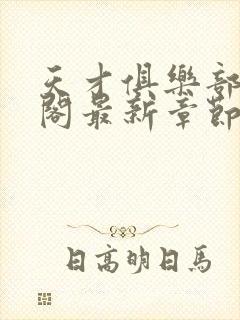 天才俱樂部
閣最新章節
日高明日馬